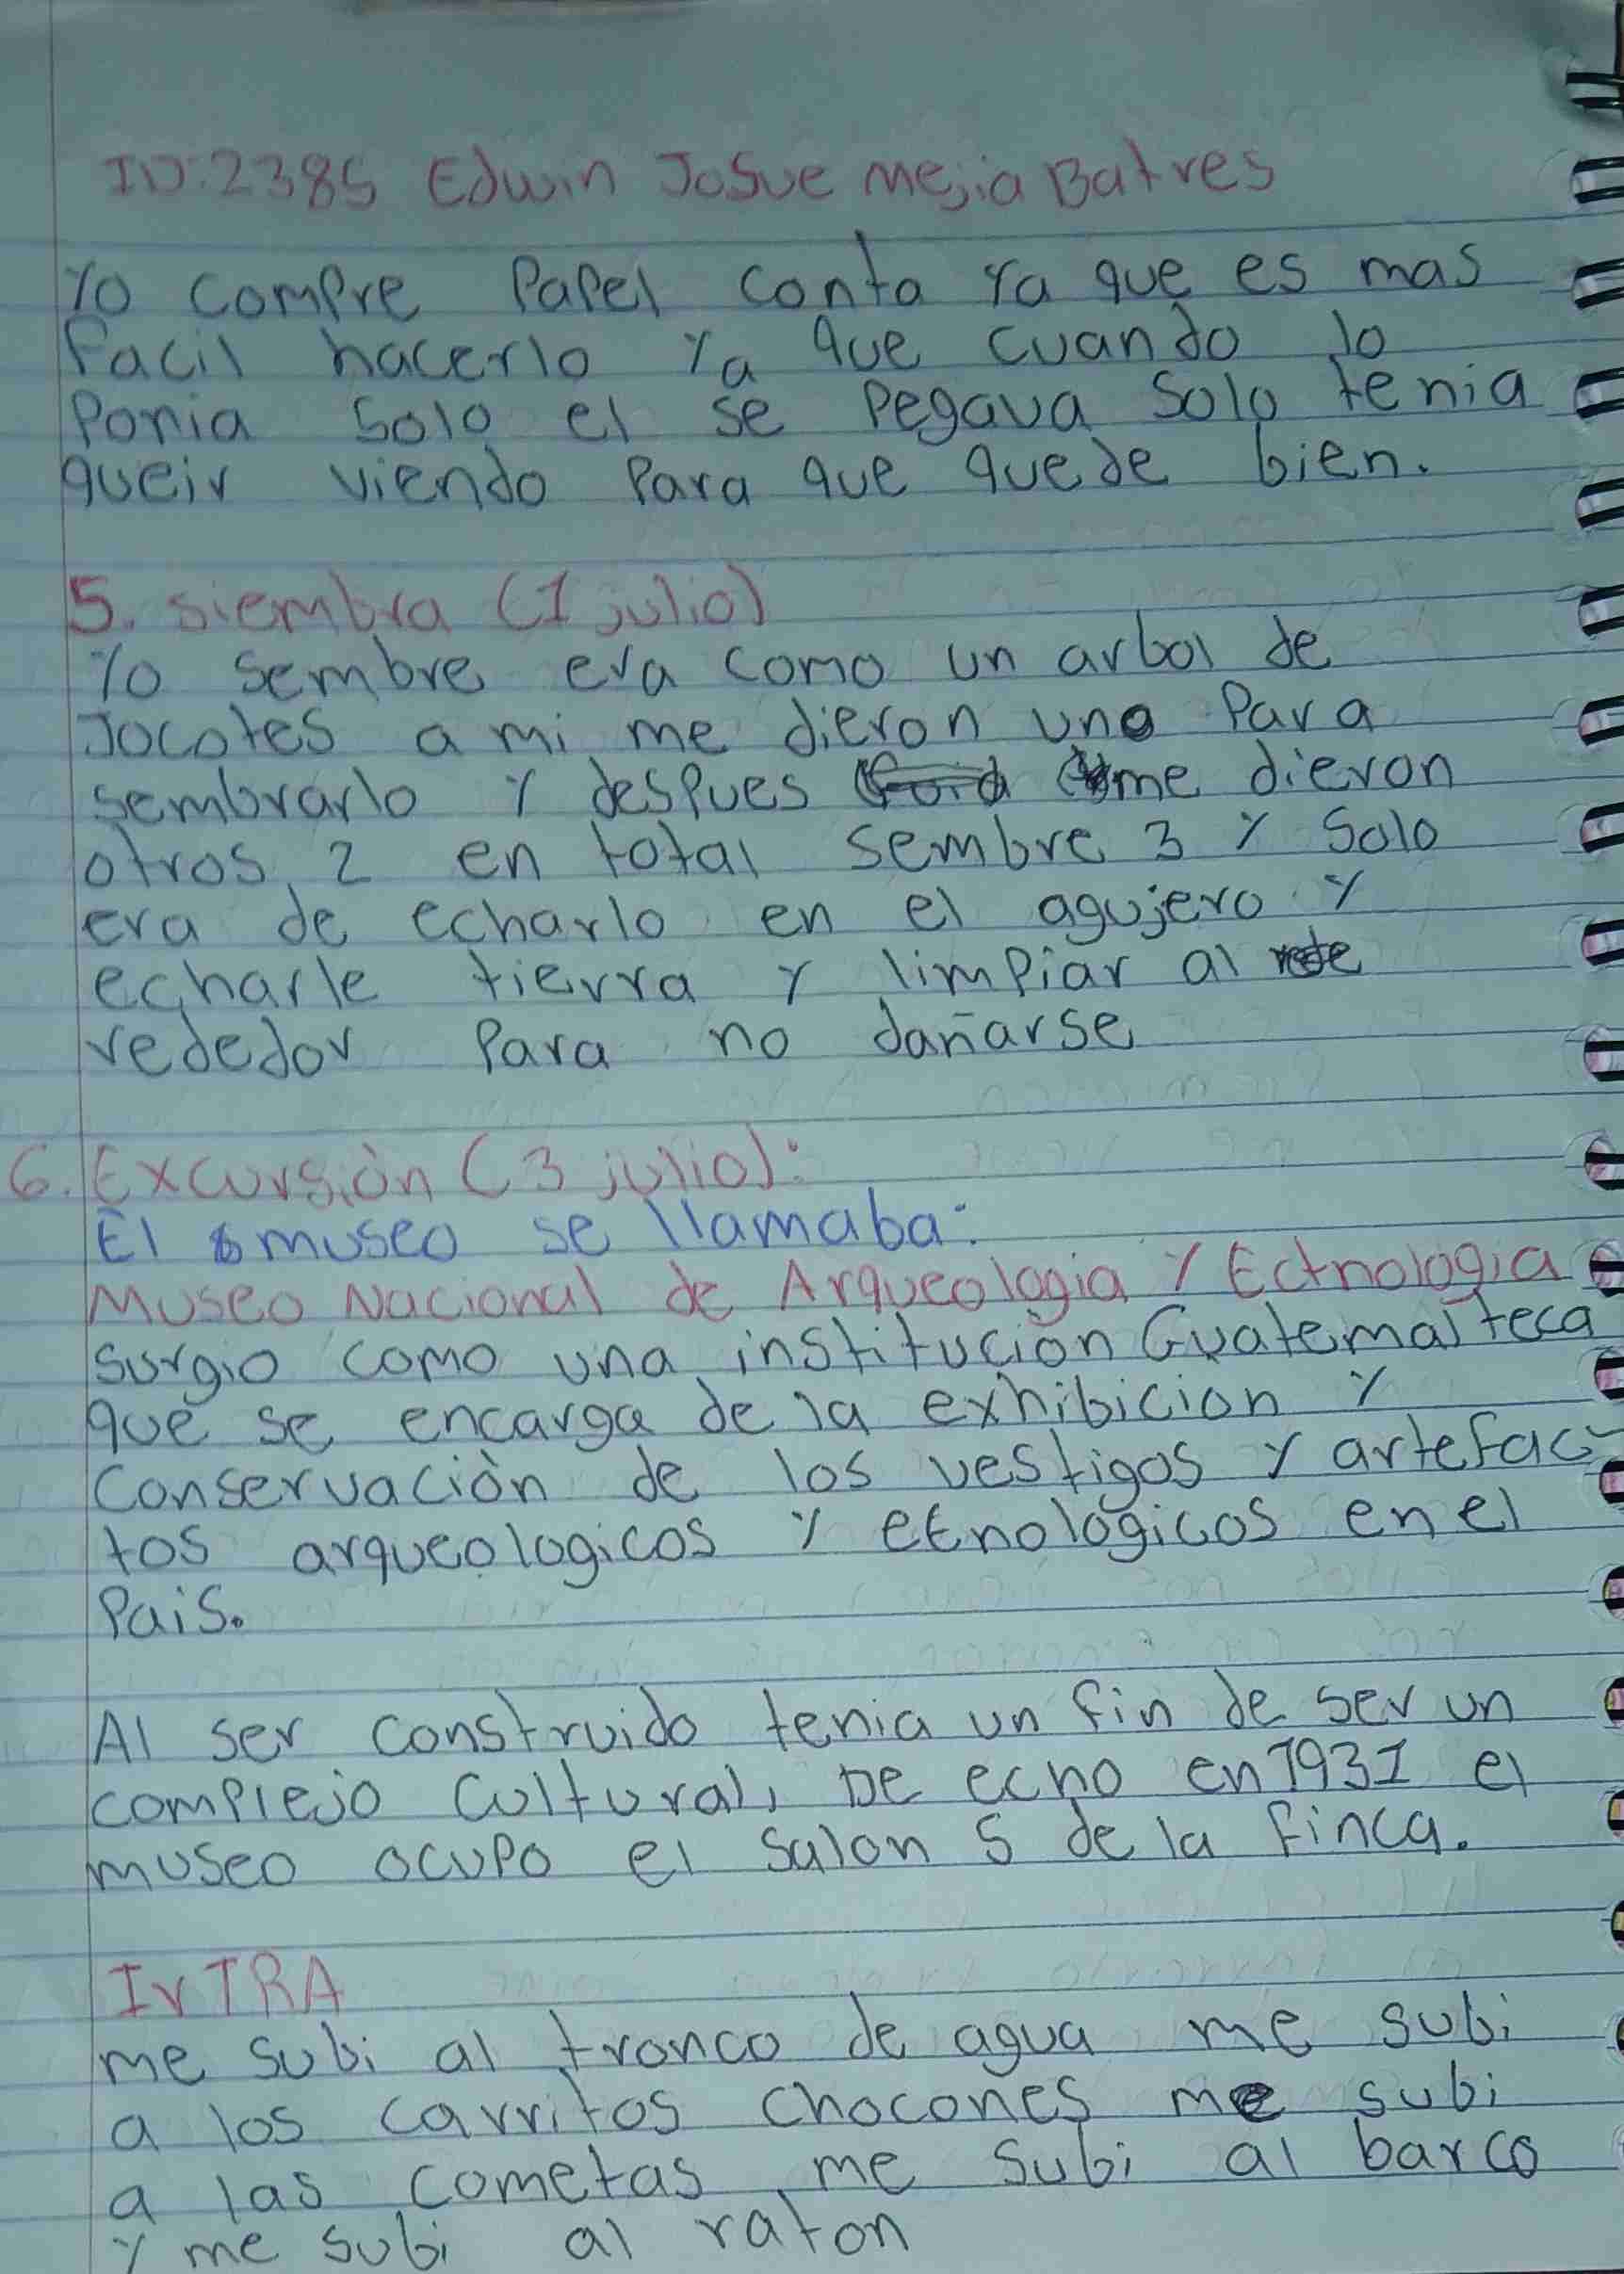 ID:2385 Edwin Josue mejia Batres
Yo compre Papel conta ya que es mas
facil hacerlo ya que cuando lo
Ponia solo el se Pegava solo tenia
queir viendo Para que quede bien.
5. siembra (1 julio)
Yo sembre era como un arbol de
Jocotes a mi me dieron uno Para
sembrarlo y desPues me dieron
otros, 2 en total sembre 3 y solo
era de echarlo en el agujero y
echarle tierra y limPiar al
rededor Para no dañarse
6. Excursiòn (3 julio):
El museo se llamaba:
Museo Nacional de Arqueologia y Ectnologia
surgio como una instituciòn Guatemalteca
que se encarga de la exhibicion y
conservaciòn de los vestigos y artefac-
tos arqueologicos y etnològicos en el
Pais.
Al ser construido tenia un fin de ser un
complejo cultural, De echo en 1931 el
museo ocuPo el salon 5 de la finca.
IrTRA
me subi al tronco de agua me subi
a los carritos chocones me subi
a las cometas me subi al barco
y me subi al raton